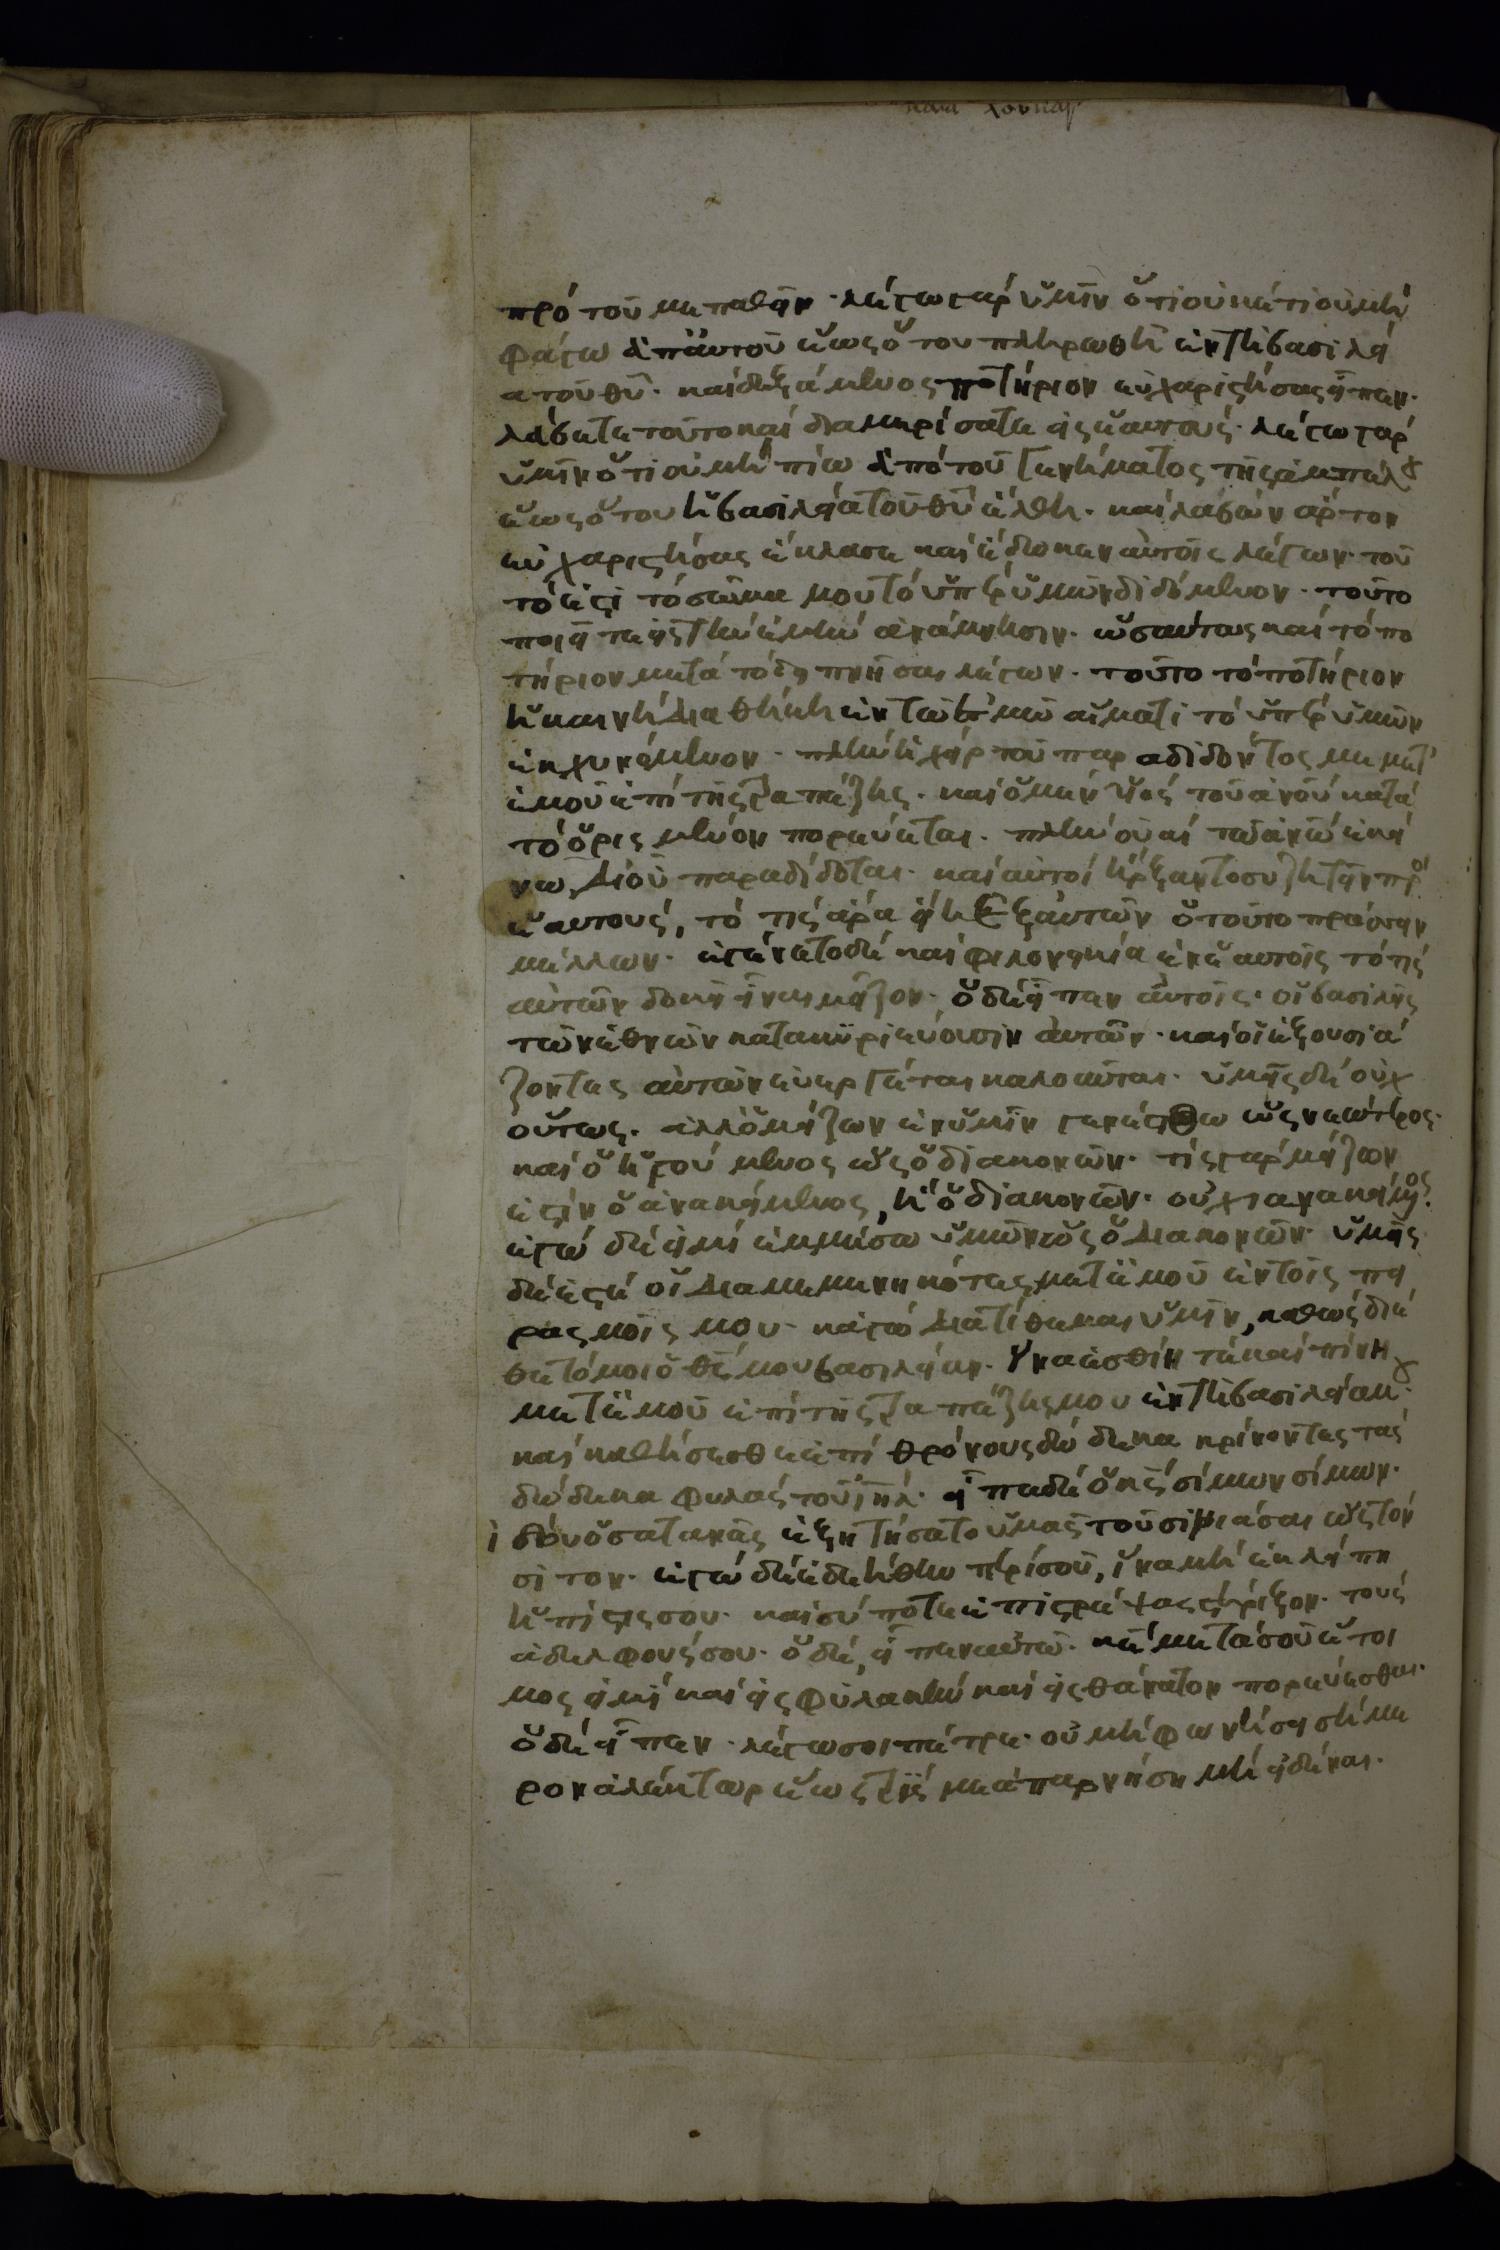 κατα λουκαν
πρὸ τοῦ με παθεῖν· λέγω γὰρ ὑμῖν ὅτι οὐκέτι οὐ μὴ
φάγω ἀπ' αὐτοῦ ἕως ὅτου πληρωθῆ ἐν τῆ βασιλεί
α τοῦ θῦ· καὶ δεξάμενος ποτήριον εὐχαριστήσας εἶπεν·
λάβετε τοῦτο καὶ διαμερίσατε εἰς ἑαυτούς· λέγω γὰρ
ὑμῖν ὅτι οὐ μὴ πίω ἀπὸ τοῦ γενήματος τῆς ἀμπέλου
ἕως ὅτου ἡ βασιλεία τοῦ θῦ ἔλθη· καὶ λαβὼν ἄρτον
εὐχαριστήσας ἔκλασε καὶ ἔδωκεν αὐτοῖς λέγων· τοῦ
τό ἐστι τὸ σῶμα μου τὸ ὑπὲρ ὑμῶν διδόμενον· τοῦτο
ποιεῖτε εἰς τὴν ἐμὴν ἀνάμνησιν· ὡσαύτως καὶ τὸ πο
τήριον μετὰ τὸ δειπνῆσαι λέγων· τοῦτο τὸ ποτήριον
ἡ καινὴ διαθήκη ἐν τῶ ἐμῶ αἵματι τὸ ὑπὲρ ὑμῶν
ἐκχυνόμενον· πλὴν ἡ χεὶρ τοῦ παραδιδόντος με μετ'
ἐμοῦ ἐπὶ τῆς τραπέζης· καὶ ὁ μὲν υἱὸς τοῦ ἀνοῦ κατὰ
τὸ ὁρισμένον πορεύεται· πλὴν οὐαὶ τῶ ἀνῶ ἐκεί
νω δι' οὗ παραδίδοται· καὶ αὐτοὶ ἤρξαντο συζητεῖν πρὸ
ἑαυτούς, τὸ τίς ἄρα εἴη ἐξ αὐτῶν ὁ τοῦτο πράσσειν
μέλλων· ἐγένετο δὲ καὶ φιλονεικία ἐν ἑαυτοῖς τὸ τίς
αὐτῶν δοκεῖ εἶναι μείζον· ὁ δὲ εἶπεν αὐτοῖς· οἱ βασιλεῖς
τῶν ἐθνῶν κατακυριεύουσιν αὐτῶν· καὶ οἱ ἐξουσιά
ζοντες αὐτῶν εὐεργέται καλοῦνται· ὑμεῖς δὲ οὐχ
οὕτως· ἀλλ' ὁ μείζων ἐν ὑμῖν γενέσθω ὡς νεώτερος·
καὶ ὁ ἡγούμενος ὡς ὁ διακονῶν· τίς γὰρ μείζων
ἐστὶν ὁ ἀνακείμενος, ἢ ὁ διακονῶν· οὐχὶ ἀνακείμενος·
ἐγὼ δὲ εἰμὶ ἐμμέσω ὑμῶν ὡς ὁ διακονῶν· ὑμεῖς
δὲ ἐστὲ οἱ διαμεμενηκότες μετ' ἐμοῦ ἐν τοῖς πει
ρασμοῖς μου· κἀγὼ διατίθεμαι ὑμῖν, καθὼς διέ
θετό μοι ὁ θς μου βασιλείαν· ἵνα ἐσθίητέ καὶ πίνη
μετ' ἐμοῦ ἐπὶ τῆς τραπέζης μου ἐν τῆ βασιλεία μου·
καὶ καθήσεσθε ἐπὶ θρόνους δώδεκα κρίνοντες τὰς
δώδεκα φυλὰς τοῦ ιηλ· εἶπε δὲ ὁ κς σίμων σίμων·
ἰδοὺ ὁ σατανᾶς ἐξητήσατο ὑμᾶς τοῦ σινιάσαι ὡς τὸν
σίτον· ἐγὼ δὲ ἐδεήθην περὶ σοῦ, ἵνα μὴ ἐκλείπη
ἡ πίστις σου· καὶ σύ ποτε ἐπιστρέψας στήριξον· τοὺς
ἀδελφούς σου· ὁ δὲ, εἶπεν αὐτῶ· κε μετὰ σοῦ ἕτοι
μος εἰμὶ καὶ εἰς φυλακὴν καὶ εἰς θάνατον πορεύεσθαι·
ὁ δὲ εἶπεν· λέγω σοι πέτρε· οὐ μὴ φωνήσει σήμε
ρον ἀλέκτωρ ἕως τρίς με ἀπαρνήση μὴ εἰδέναι·